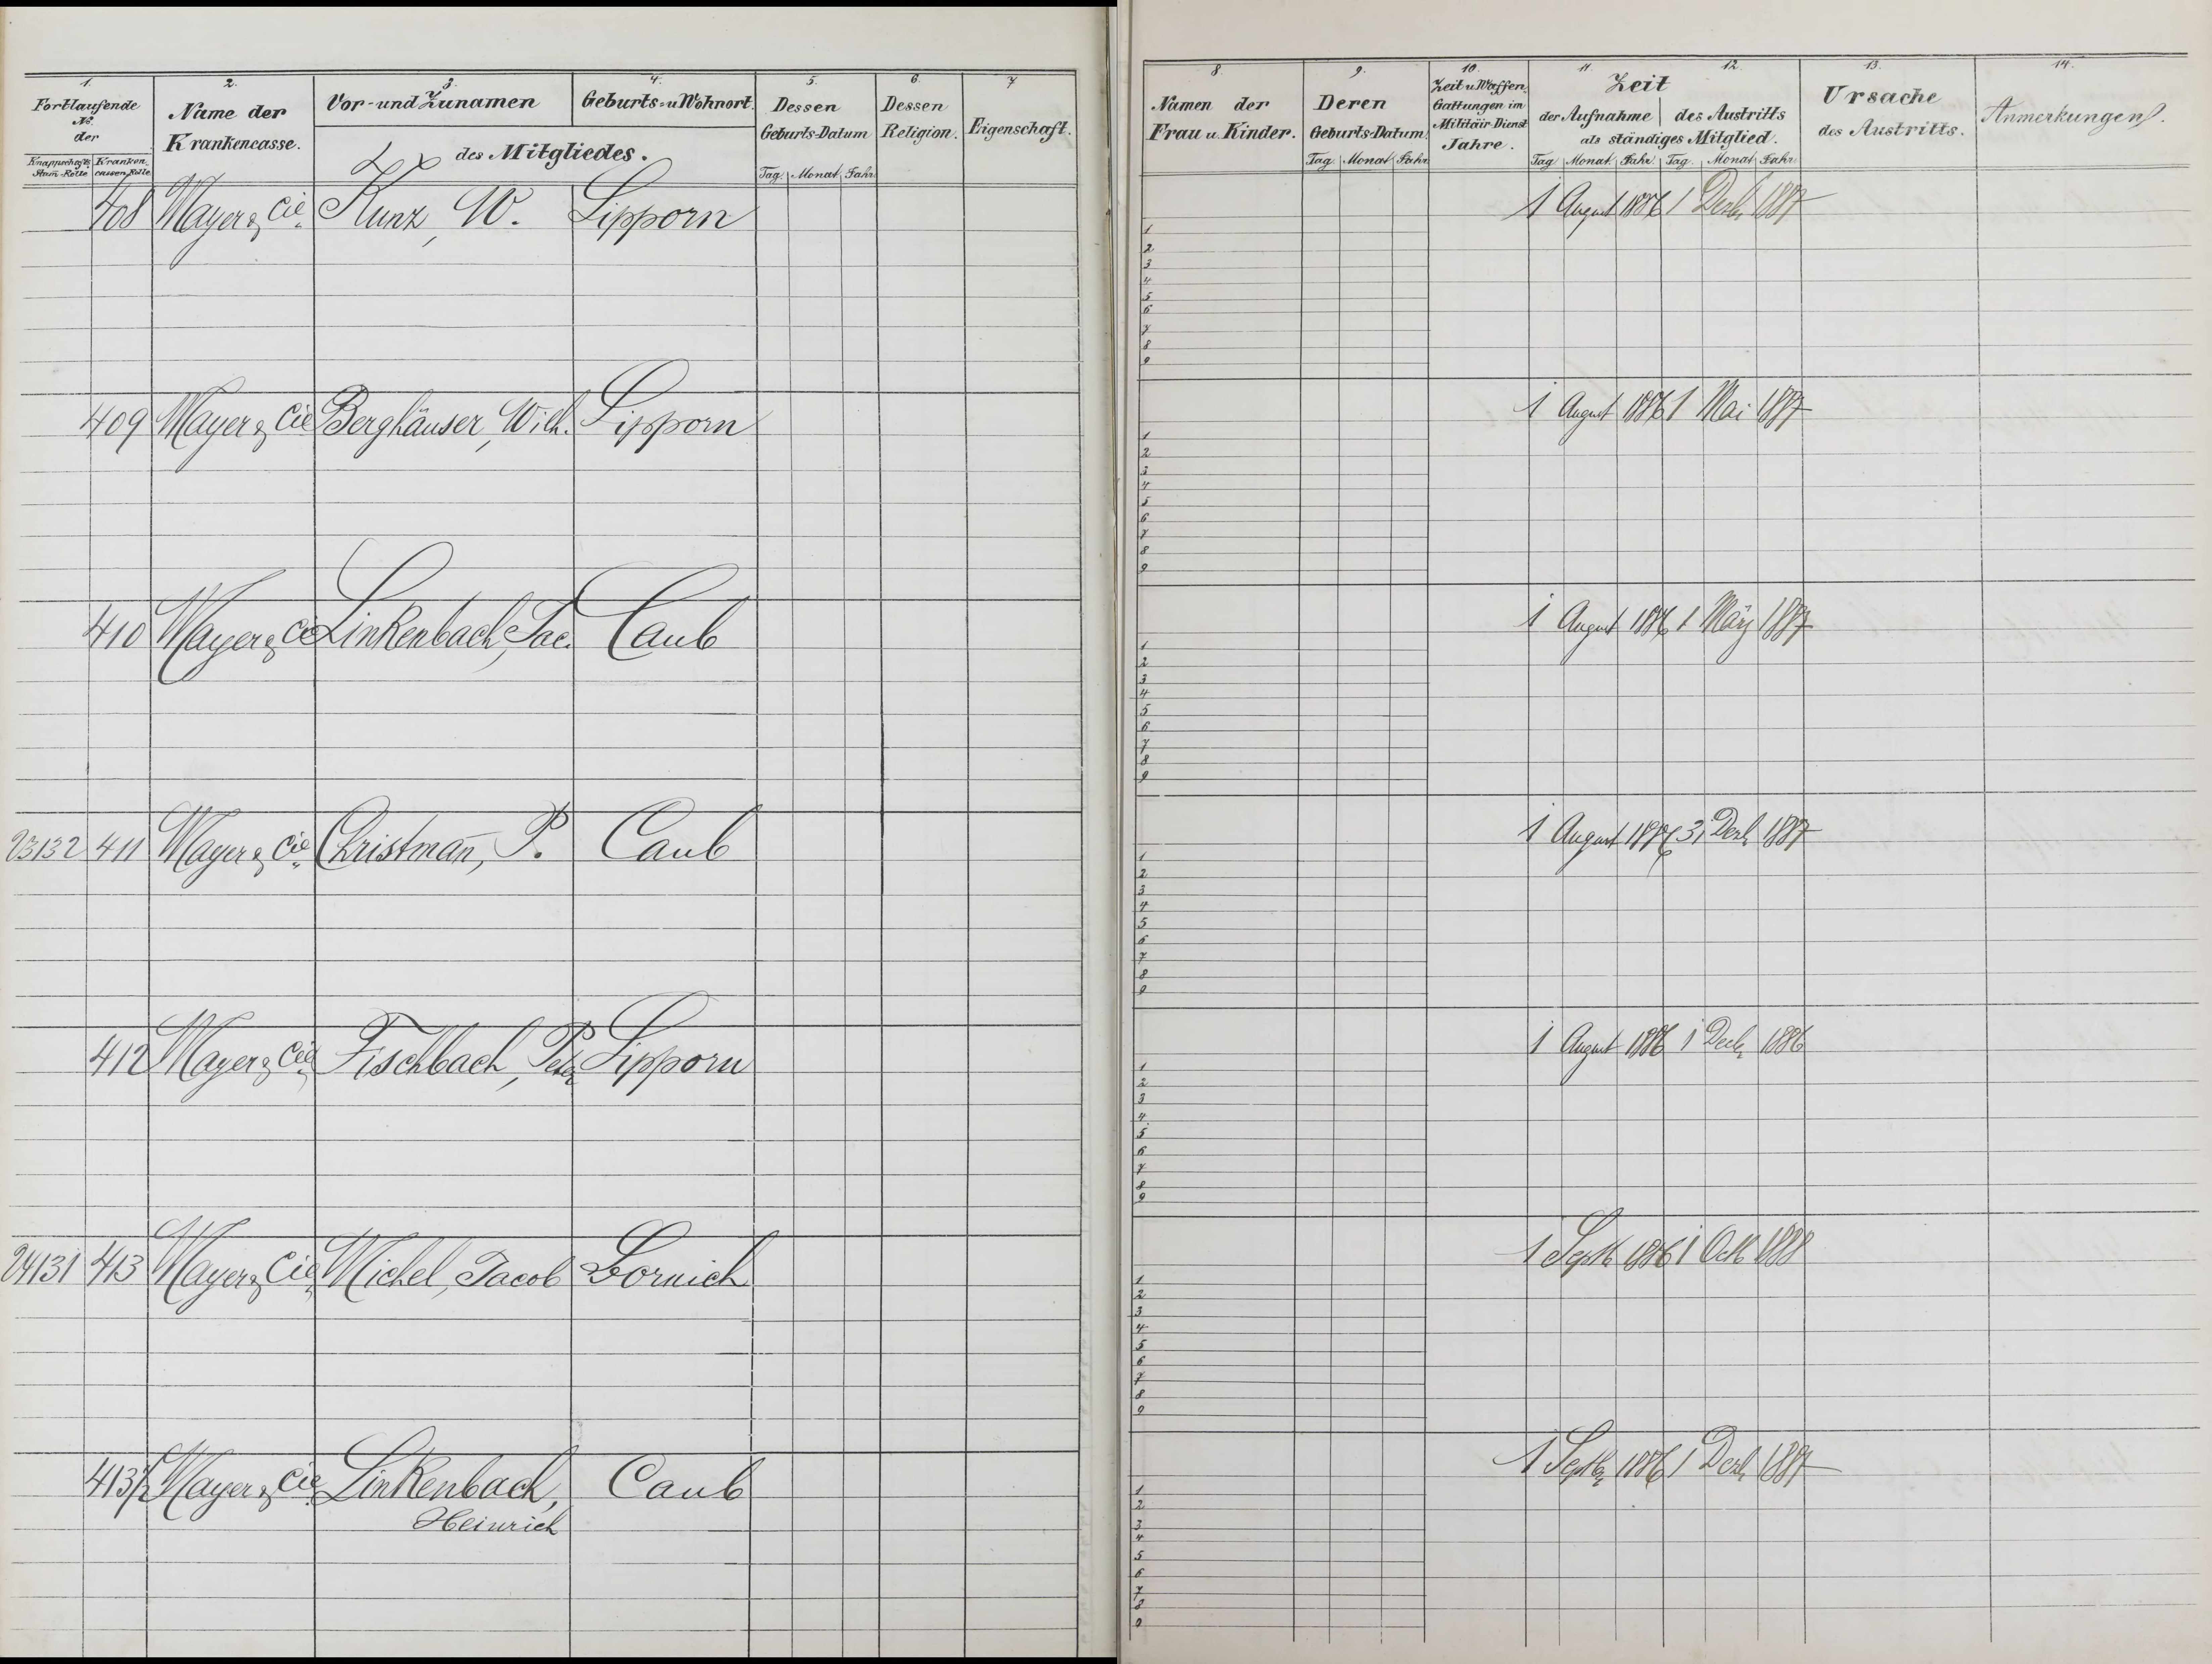 1. 2. 3. 4. 5. 6. 7
Fortlaufende No. der
Knappschafts Stam-Rolle Kranken cassen Rolle
Name der Krankencasse.
Vor- und Zunamen Geburts- u Wohnort.
des Mitgliedes.
Dessen Geburts-Datum
Tag. Monat Jahr
Dessen Religion.
Eigenschaft.
408 Mayer & Cie. Kunz, W. Lipporn
409 Mayer & Cie Berghäuser, Wilh. Lipporn
410 Mayer & Cie Linkenbach, Jac. Caub
23132 411 Mayer & Cie. Christman̄, P. Caub
412 Mayer & Cie. Fischbach, Peter Lipporn
24131 413 Mayer & Cie. Michel, Jacob Bornich
413½ Mayer & Cie. Linkenbach, Caub
Heinrich
8. 9. 10. 11 12. 13. 14.
Namen der Frau u. Kinder.
Deren Geburts-Datum
Tag Monat Jahr
Zeit u Waffen Gattungen im Militäir-Dienst Jahre.
Zeit
der Aufnahme des Austritts
als ständiges Mitglied.
Tag Monat Jahr Tag. Monat Jahr
Ursache des Austritts.
Anmerkungen.
1 August 1886 1 Dezb 1887
1
2
3
4
5
6
7
8
9
1 August 1886 1 Mai 1887
1
2
3
4
5
6
7
8
9
1 August 1886 1 März 1887
1
2
3
4
5
6
7
8
9
1 August 1886 31 Dezb 1887
1
2
3
4
5
6
7
8
9
1 August 1886 1 Decb 1886
1
2
3
4
5
6
7
8
9
1 Septb 1886 1 Octb 1888
1
2
3
4
5
6
7
8
9
1 Septbr 1886 1 Dezb 1887
1
2
3
4
5
6
7
8
9